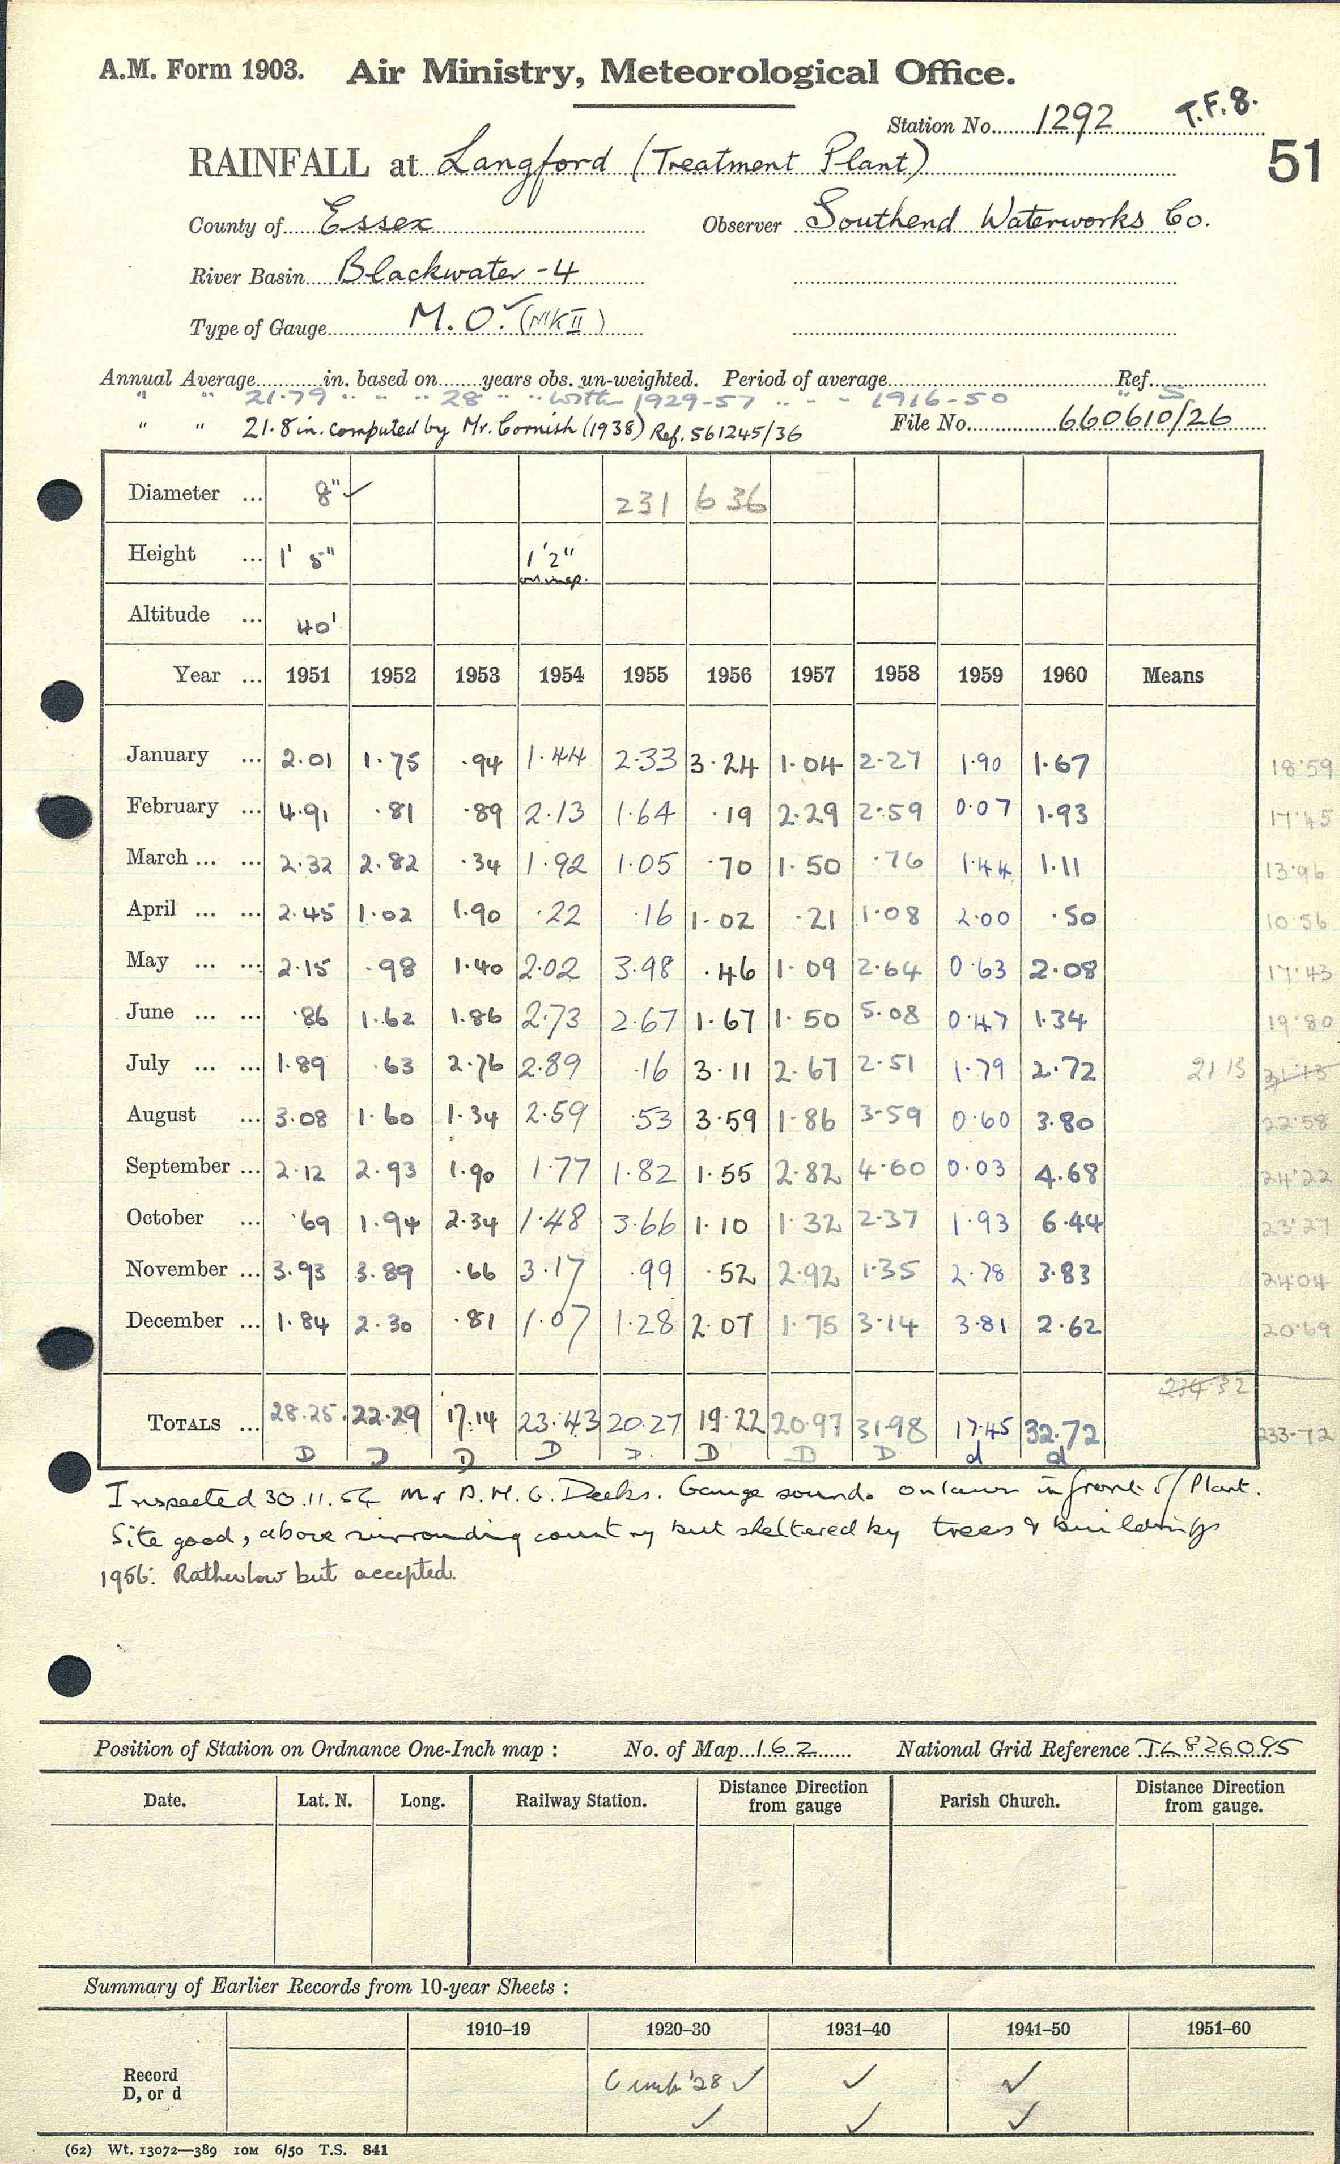 A.M. Form 1903. Air Ministry, Meteorological Office.
Station No. 1292 T.F.8.
RAINFALL at Langford (Treatment Plant) 51
County of Essex Observer Southend Waterworks Co.
River Basin Blackwater -4
Type of Gauge M.O. ✓ (MK II)
Annual Average in. based on years obs. un-weighted. Period of average Ref.
" " 21.79 " " " 28 " " with 1929-57 " - - 1916-50 " S
" " 21.8 in. computed by Mr. Cornish (1938) Ref. 561245/36 File No. 660610/26
Diameter ... 8" ✓ 231 636
Height ... 1' 5" 1'2"
on insp.
Altitude ... 40'
Year ... 1951 1952 1953 1954 1955 1956 1957 1958 1959 1960 Means
January ... 2.01 1.75 .94 1.44 2.33 3.24 1.04 2.27 1.90 1.67 18.59
February ... 4.91 .81 .89 2.13 1.64 .19 2.29 2.59 0.07 1.93 17.45
March ... ... 2.32 2.82 .34 1.92 1.05 .70 1.50 .76 1.44 1.11 13.96
April ... ... 2.45 1.02 1.90 .22 .16 1.02 .21 1.08 2.00 .50 10.56
May ... ... 2.15 .98 1.40 2.02 3.98 .46 1.09 2.64 0.63 2.08 17.43
June ... ... .86 1.62 1.86 2.73 2.67 1.67 1.50 5.08 0.47 1.34 19.80
July ... ... 1.89 .63 2.76 2.89 .16 3.11 2.67 2.51 1.79 2.72 21.13 21.13
August ... 3.08 1.60 1.34 2.59 .53 3.59 1.86 3.59 0.60 3.80 22.58
September ... 2.12 2.93 1.90 1.77 1.82 1.55 2.82 4.60 0.03 4.68 24.22
October ... .69 1.94 2.34 1.48 3.66 1.10 1.32 2.37 1.93 6.44 23.27
November ... 3.93 3.89 .66 3.17 .99 .52 2.92 1.35 2.78 3.83 24.04
December ... 1.84 2.30 .81 1.07 1.28 2.07 1.75 3.14 3.81 2.62 20.69
TOTALS ... 28.25 22.29 17.14 23.43 20.27 19.22 20.97 31.98 17.45 32.72 233.72
D D D D D D D D d d
Inspected 30.11.54 Mr D.H.G. Deeks. Gauge sound. On lawn in front of Plant.
Site good, above surrounding country but sheltered by trees & buildings
1956: Rather low but accepted.
Position of Station on Ordnance One-Inch map : No. of Map 162 National Grid Reference TL826095
Date. Lat. N. Long. Railway Station. Distance Direction from gauge Parish Church. Distance Direction from gauge.
Summary of Earlier Records from 10-year Sheets :
1910–19 1920–30 1931–40 1941–50 1951–60
Record '28 ✓ ✓ ✓
D, or d ✓ ✓ ✓
(62) Wt. 13072—389 10M 6/50 T.S. 841